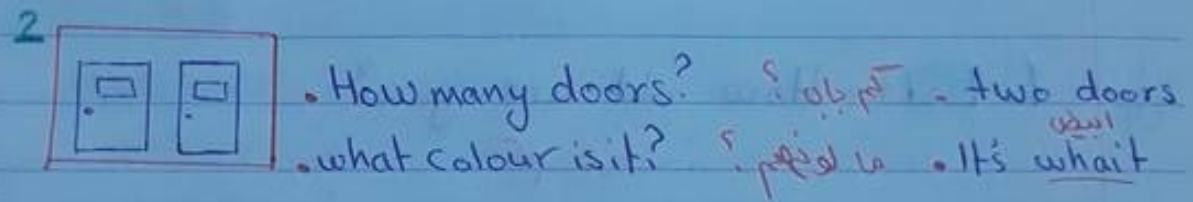 2
• How many doors? كم باب؟ - two doors
ابيض
• what colour is it? ما لونهم؟ • It's whait